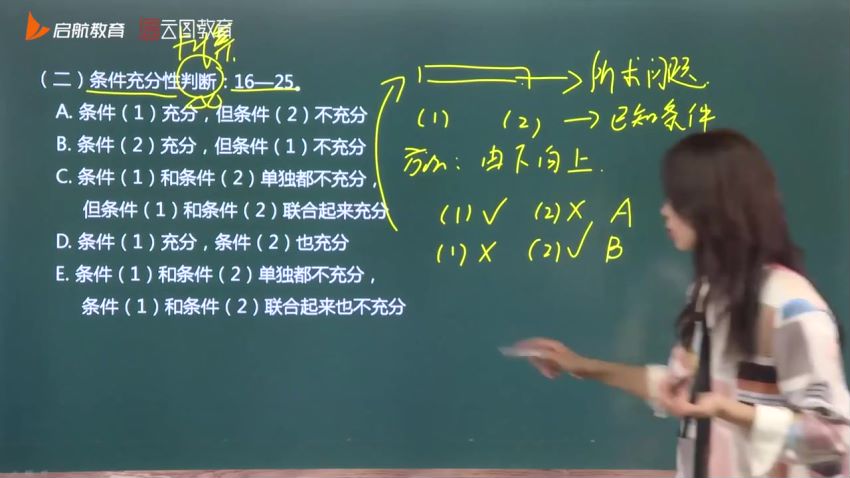 启航教育 云图教育
（二）条件充分性判断：16—25。
A. 条件（1）充分，但条件（2）不充分
B. 条件（2）充分，但条件（1）不充分
C. 条件（1）和条件（2）单独都不充分，
但条件（1）和条件（2）联合起来充分
D. 条件（1）充分，条件（2）也充分
E. 条件（1）和条件（2）单独都不充分，
条件（1）和条件（2）联合起来也不充分
所求问题.
(1) (2) → 已知条件
方向：由下向上.
(1)√ (2)× A
(1)× (2)√ B